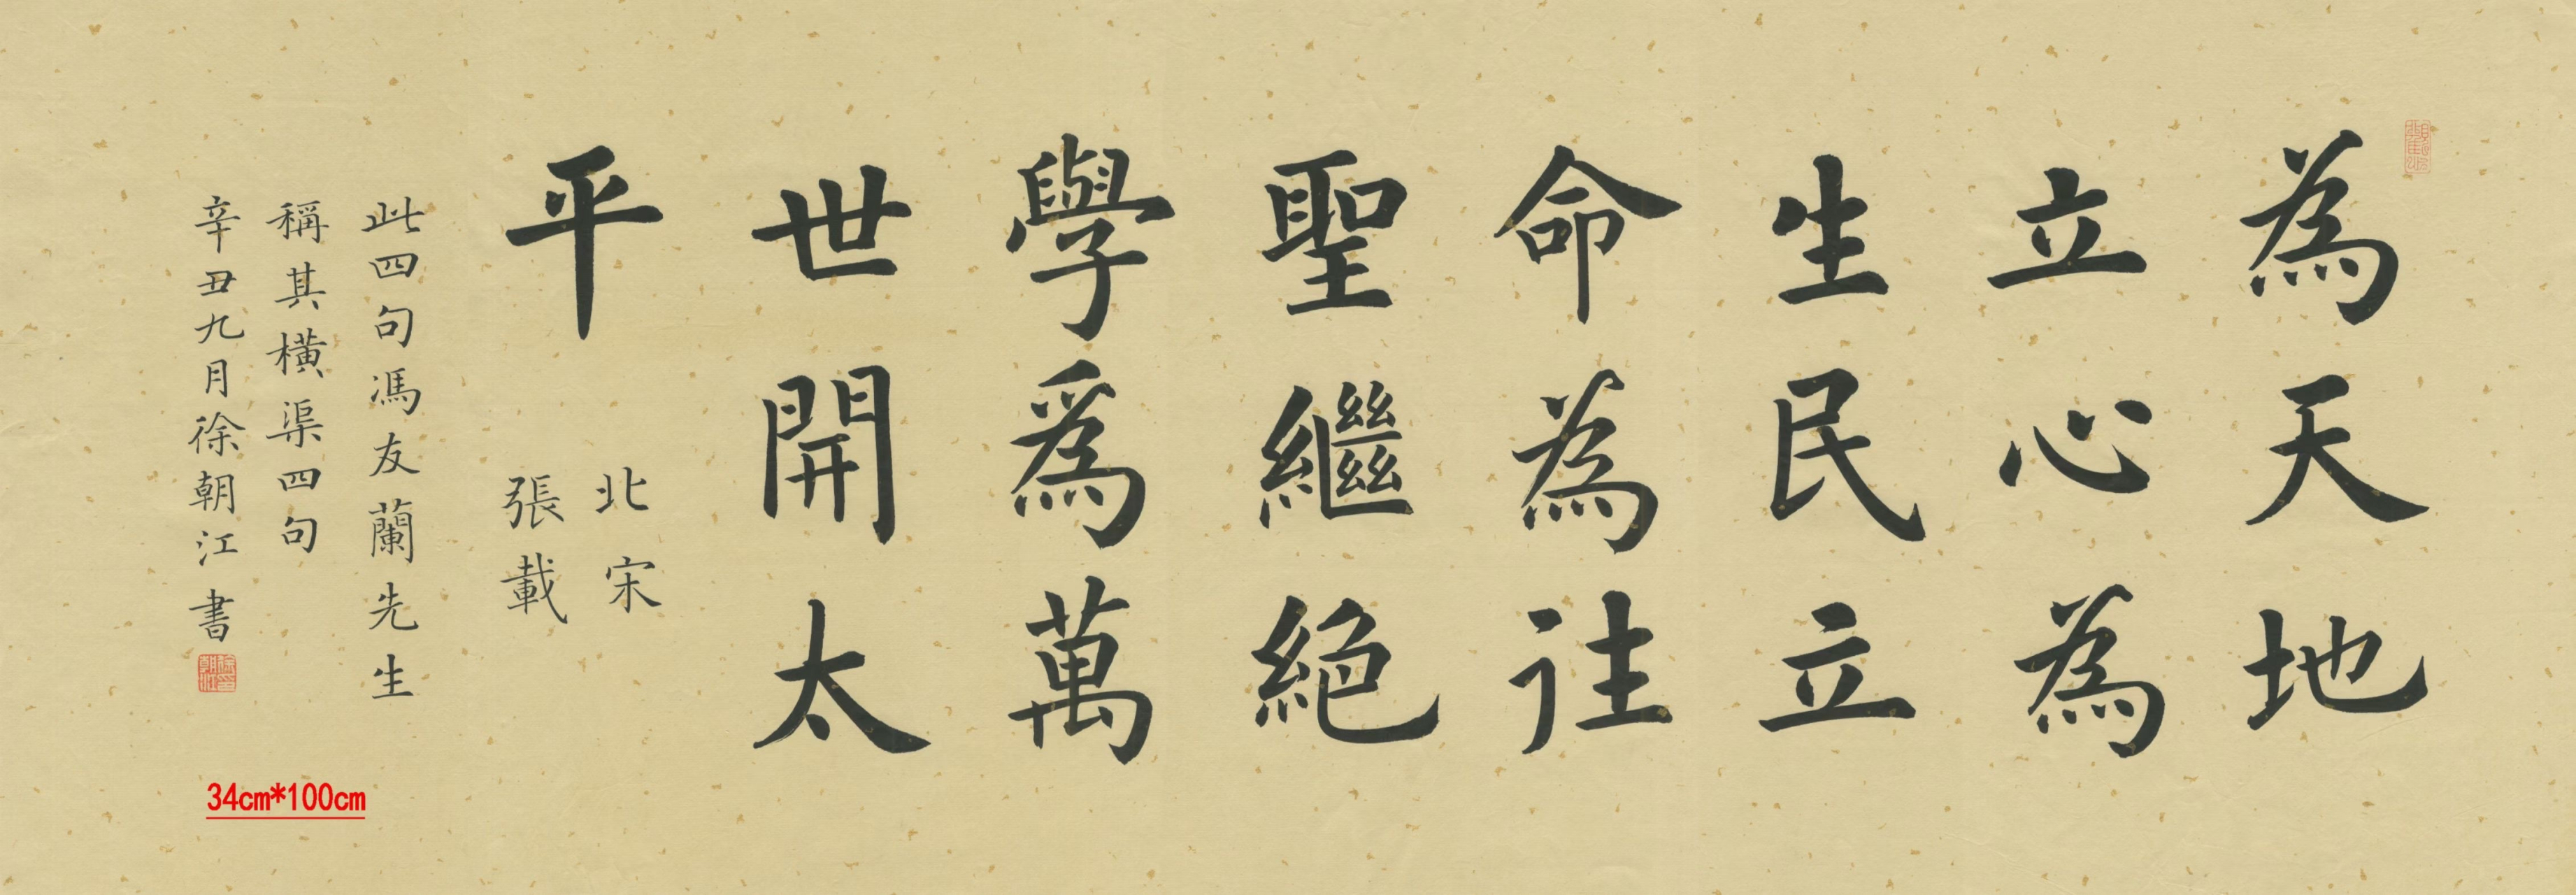 為天地
立心為
生民立
命為往
聖繼絕
學爲萬
世開太
平
北宋
張載
此四句馮友蘭先生
稱其橫渠四句
辛丑九月徐朝江書
徐印朝江
34cm*100cm